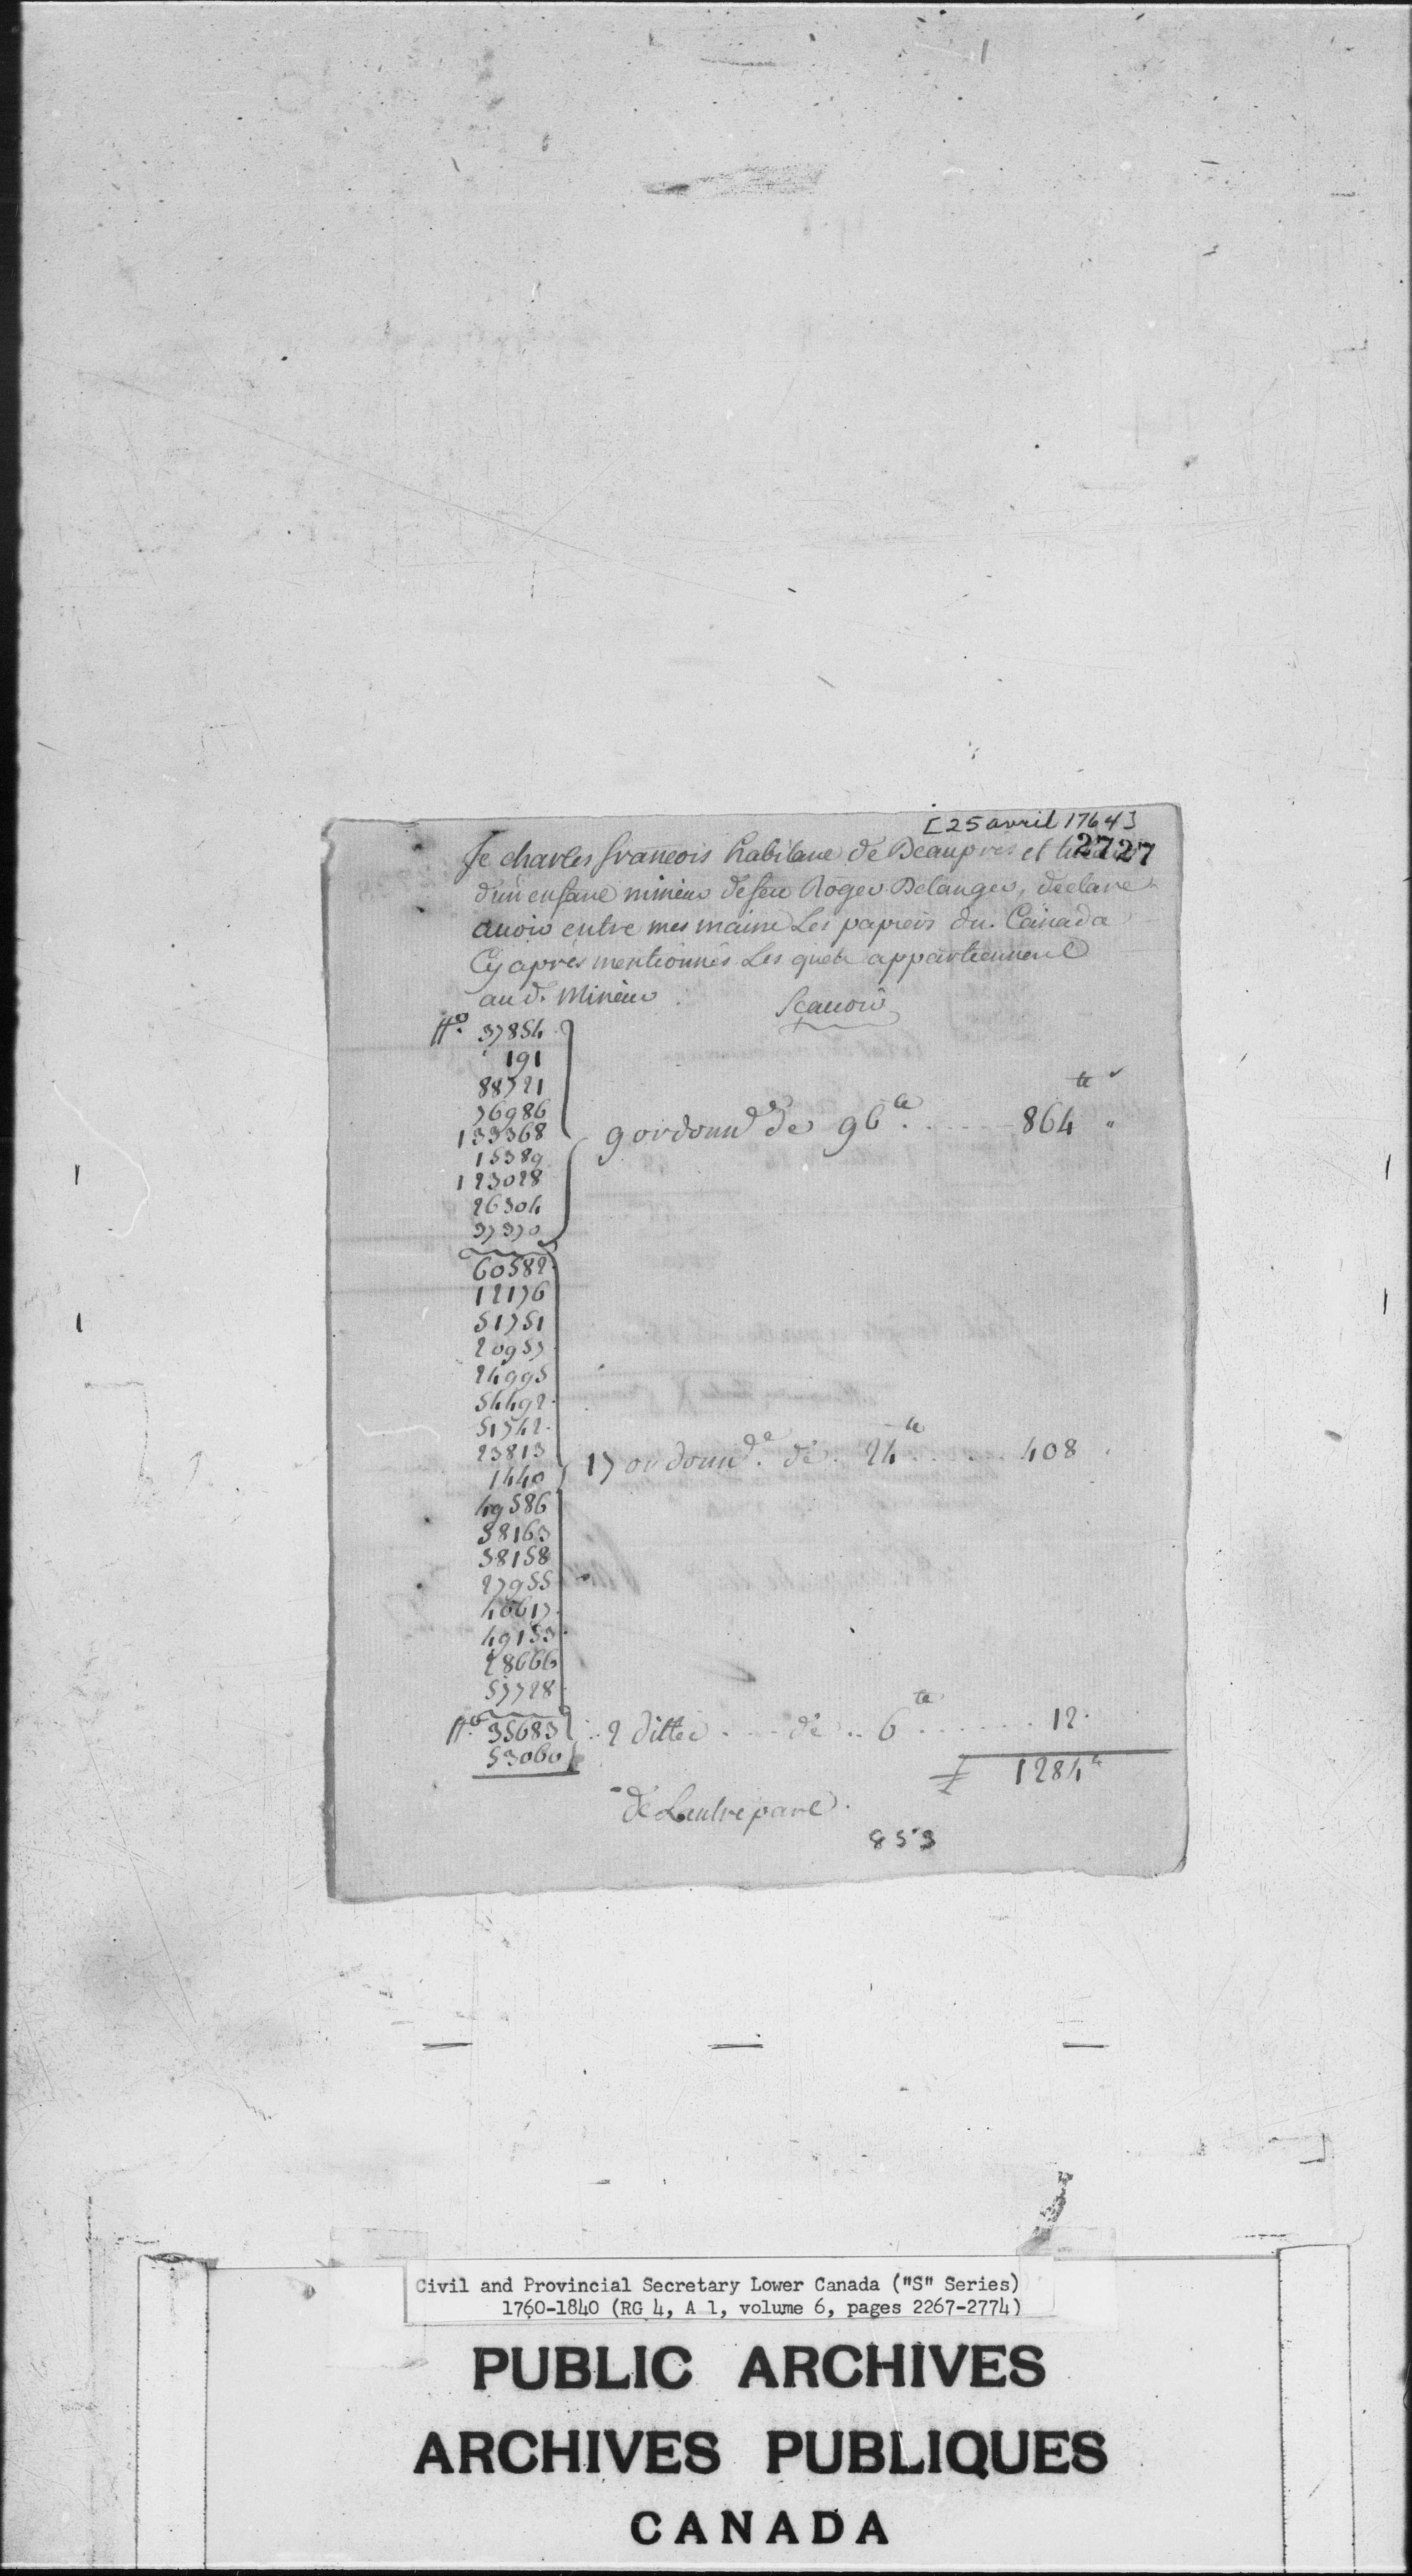 [25 avril 1764]
2727
Je charles francois habitant de Beaupres et
d'un enfant mineur de feu Roger Belanger, declare
avoir entre mes mains Les papiers du Canada
Cy après mentionnés Les quels appartiennent
au d. Mineur
Scavoir
No. 37854
191
88721
76986
133368
15389
123028
26304
37370
9 ordonn de 96 ..... 864
60582
12176
51751
20957
24995
54492
51742
23813
1440
49586
38163
38158
27955
40617
49133
28666
57728
17 ordonn. de 24 ..... 408
No. 35683
53060
2 dittes .... de .. 6 ....... 12.
1284
de Lautre part.
853
Civil and Provincial Secretary Lower Canada ("S" Series)
1760-1840 (RG 4, A 1, volume 6, pages 2267-2774)
PUBLIC ARCHIVES
ARCHIVES PUBLIQUES
CANADA